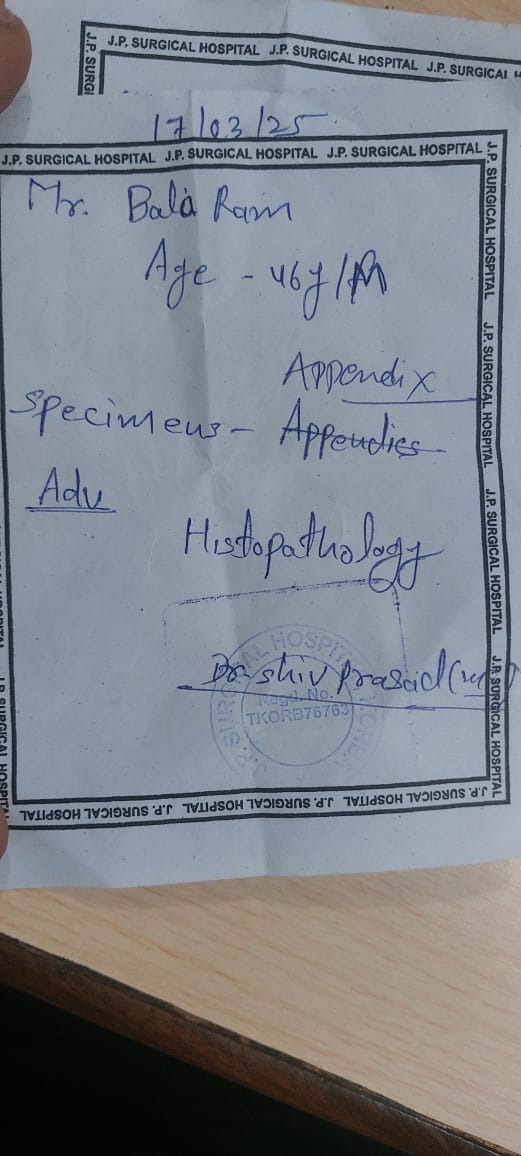 J.P. SURGICAL HOSPITAL J.P. SURGICAL HOSPITAL J.P. SURGICAL H
J.P. SURGI
17/03/25
J.P. SURGICAL HOSPITAL J.P. SURGICAL HOSPITAL J.P. SURGICAL HOSPITAL
Mr. Bala Ram
Age - 46y/M
Appendix
Specimens - Appendies
Adv
Histopathology
Dr. Shiv Prasad
J.P. SURGICAL HOSPITAL
Regd. No.
TKORB76763
J.P. SURGICAL HOSPITAL J.P. SURGICAL HOSPITAL J.P. SURGICAL HOSPITAL J.P. SURGICAL HOSPITAL
J.P. SURGICAL HOSPITAL J.P. SURGICAL HOSPITAL J.P. SURGICAL HOSPITAL
J.P. SURGICAL HOSPITAL